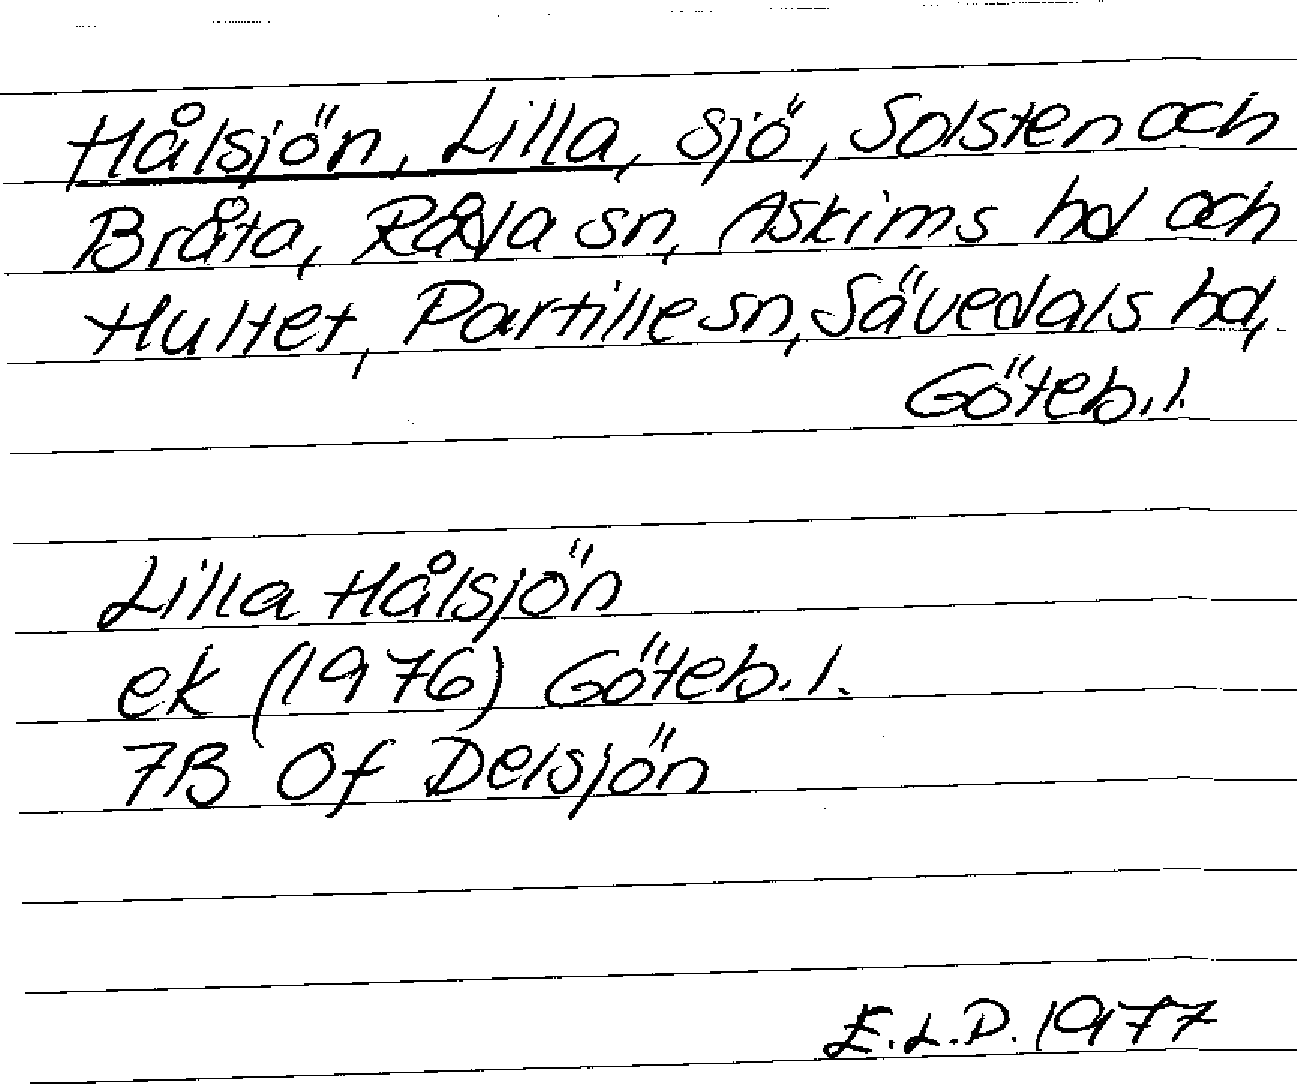 Hålsjön, Lilla, sjö, Solsten och
Bråta, Råda sn, Askims hd och
Hultet, Partille sn, Sävedals hd,
Göteb. l.
Lilla Hålsjön
ek (1976) Göteb. l.
7B 0f Delsjön
E.L.D. 1977